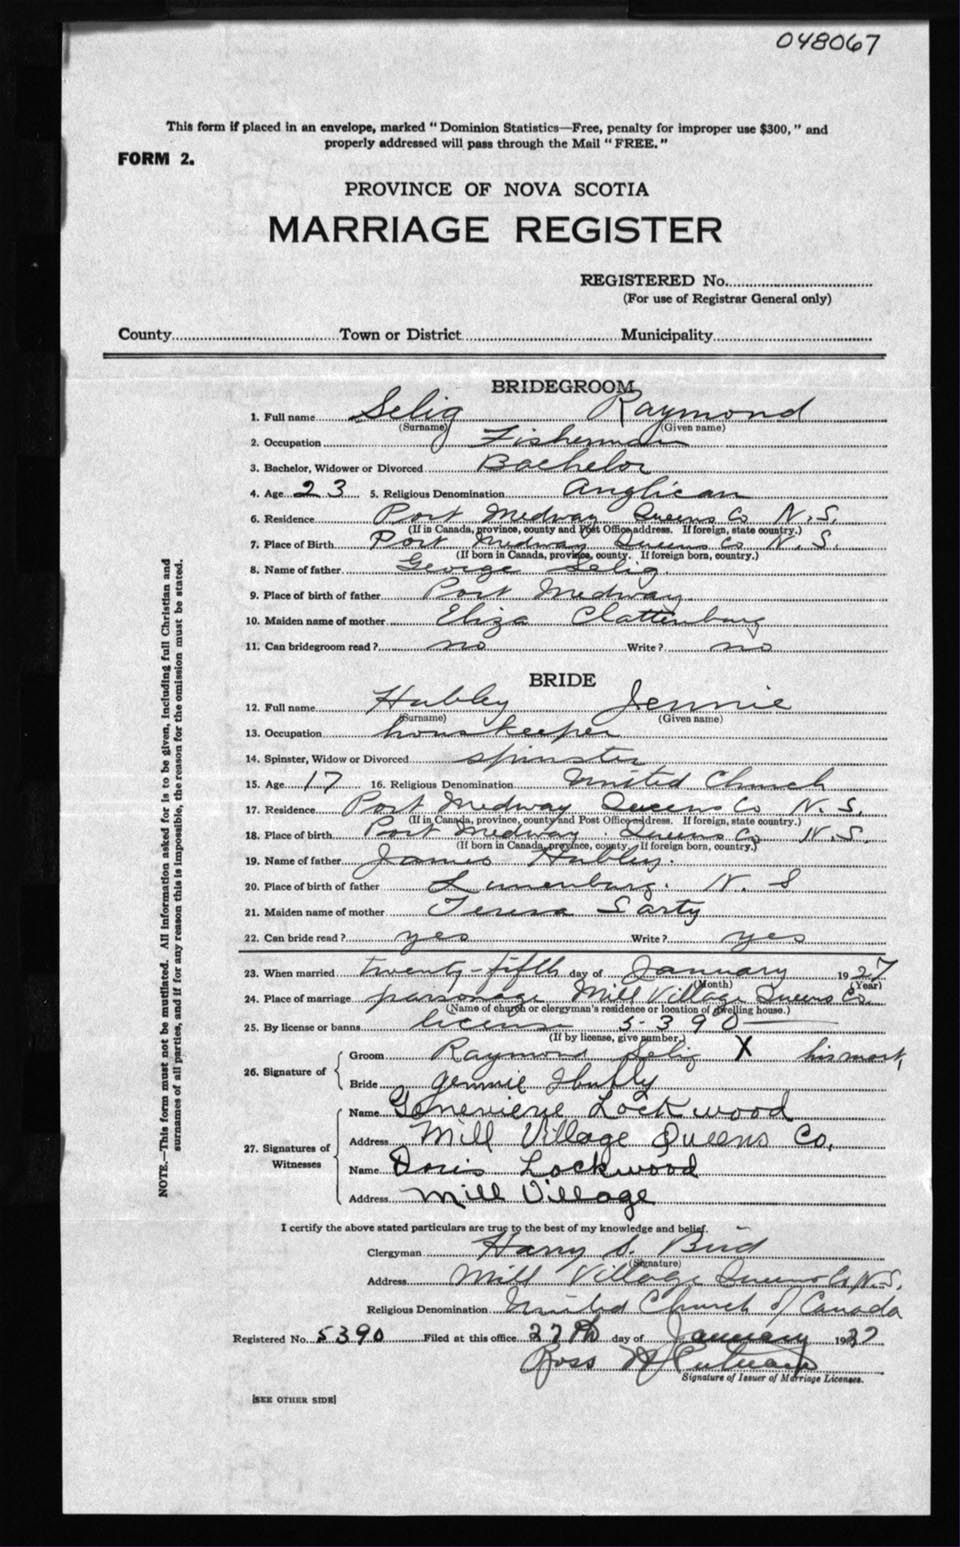 048067
This form if placed in an envelope, marked "Dominion Statistics—Free, penalty for improper use $300," and
properly addressed will pass through the Mail "FREE."
FORM 2.
PROVINCE OF NOVA SCOTIA
MARRIAGE REGISTER
REGISTERED No.
(For use of Registrar General only)
County Town or District Municipality
BRIDEGROOM
1. Full name Selig Raymond
(Surname) (Given name)
2. Occupation Fisherman
3. Bachelor, Widower or Divorced Bachelor
4. Age 23 5. Religious Denomination Anglican
6. Residence Port Medway Queens Co N.S.
(If in Canada, province, county and Post Office address. If foreign, state country.)
7. Place of Birth Port Medway Queens Co N.S.
(If born in Canada, province, county. If foreign born, country.)
8. Name of father George Selig
9. Place of birth of father Port Medway
10. Maiden name of mother Eliza Clattenburg
11. Can bridegroom read? no Write? no
BRIDE
12. Full name Hubley Jennie
(Surname) (Given name)
13. Occupation houskeeper
14. Spinster, Widow or Divorced spinster
15. Age 17 16. Religious Denomination United Church
17. Residence Port Medway Queens Co N.S.
(If in Canada, province, county and Post Office address. If foreign, state country.)
18. Place of birth Port Medway Queens Co N.S.
(If born in Canada, province, county. If foreign born, country.)
19. Name of father James Hubley.
20. Place of birth of father Lunenburg. N. S
21. Maiden name of mother Teresa Sarty
22. Can bride read? yes Write? yes
23. When married twenty-fifth day of January 1927
(Month) (Year)
24. Place of marriage parsonage Mill Village Queens Co.
(Name of church or clergyman's residence or location of dwelling house.)
25. By license or banns license 5390
(If by license, give number.)
26. Signature of
Groom Raymond Selig X his mark,
Bride Jennie Hubly
27. Signatures of Witnesses
Name Genevieve Lockwood
Address Mill Village Queens Co.
Name Doris Lockwood
Address Mill Village
I certify the above stated particulars are true to the best of my knowledge and belief.
Clergyman Harry S. Bird
(Signature)
Address Mill Village Queens Co N.S.
Religious Denomination United Church of Canada
Registered No. 5390 Filed at this office 27th day of January 1927
Ross
Signature of Issuer of Marriage Licenses.
[SEE OTHER SIDE]
NOTE.—This form must not be mutilated. All information asked for is to be given, including full Christian and
surnames of all parties, and if for any reason this is impossible, the reason for the omission must be stated.